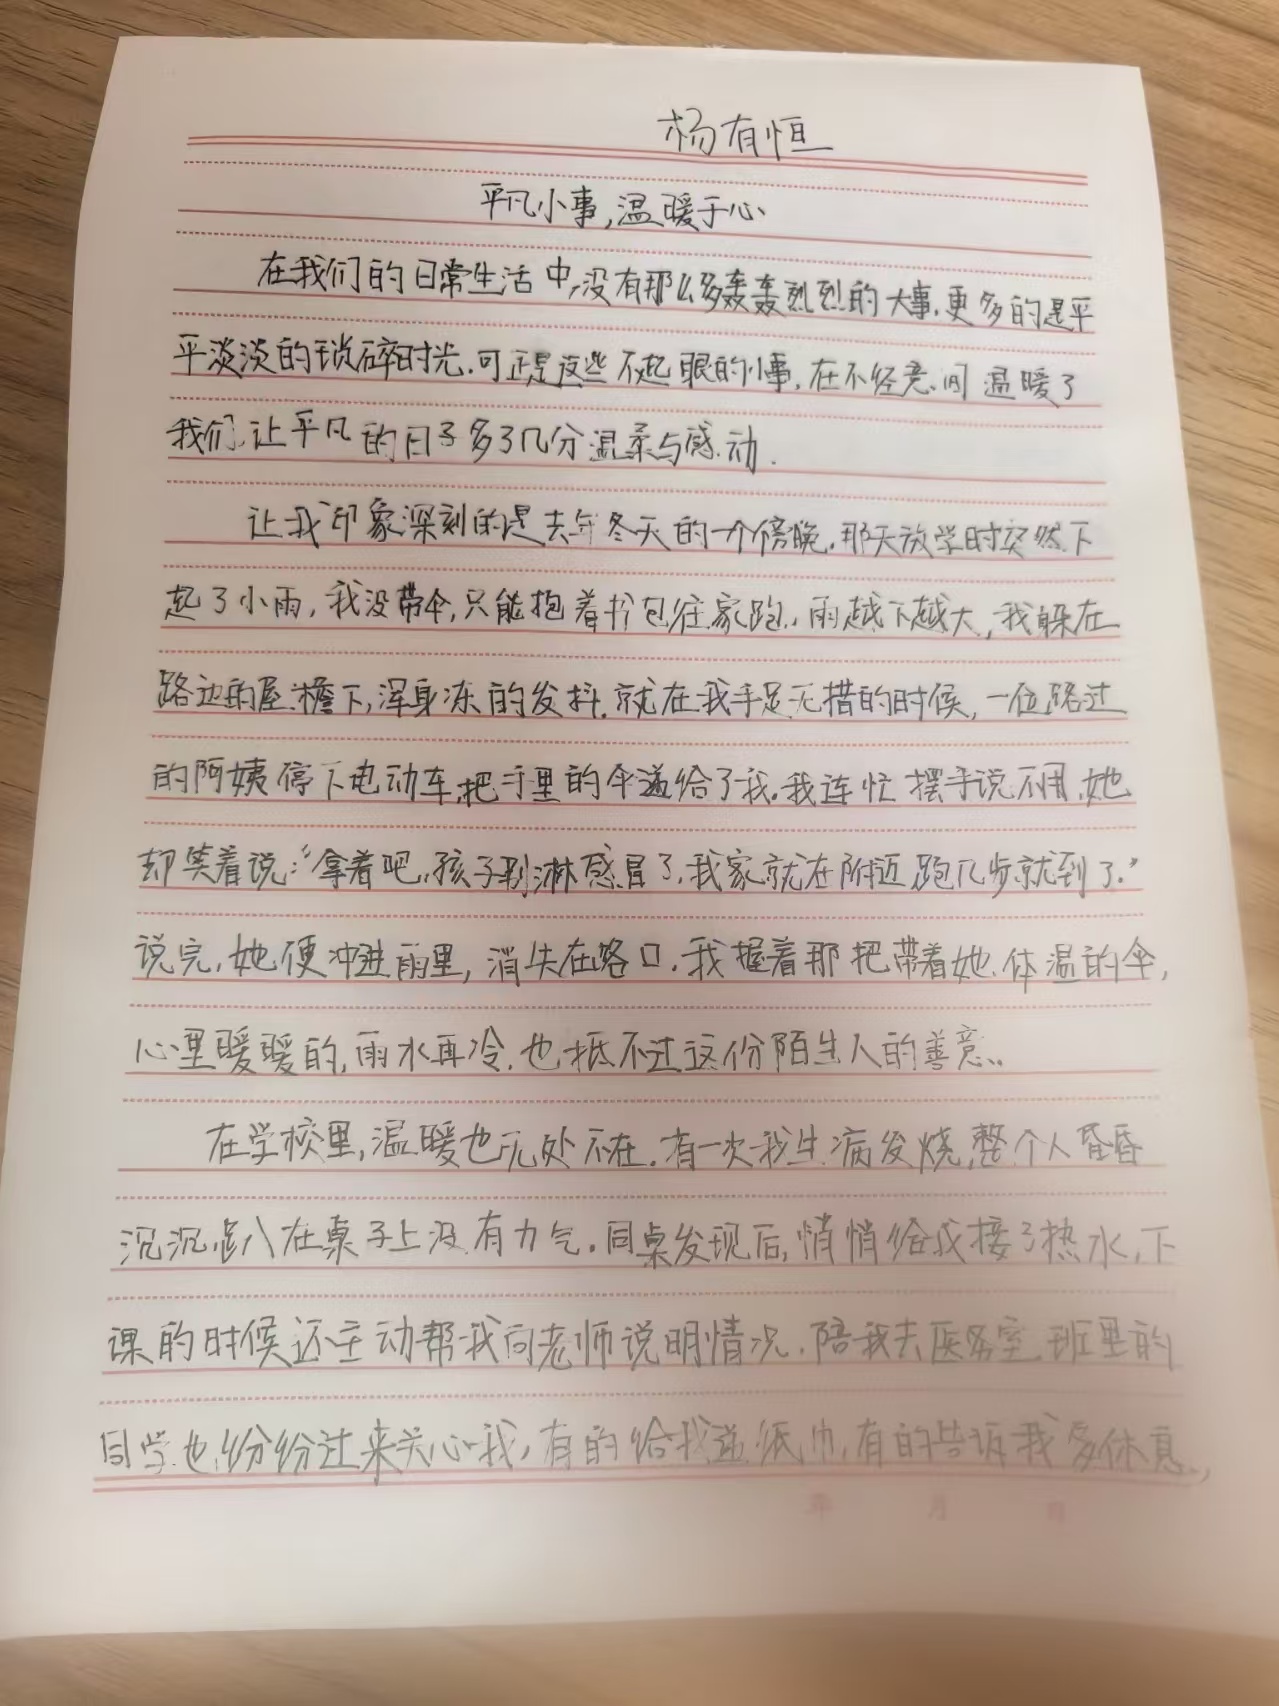 杨有恒
平凡小事,温暖于心
在我们的日常生活中,没有那么多轰轰烈烈的大事.更多的是平
平淡淡的琐碎时光.可正是这些不起眼的小事,在不经意间温暖了
我们,让平凡的日子多了几分温柔与感动.
让我印象深刻的是去年冬天的一个傍晚.那天放学时突然下
起了小雨,我没带伞,只能抱着书包往家跑.雨越下越大,我躲在
路边的屋檐下,浑身冻的发抖.就在我手足无措的时候,一位路过
的阿姨停下电动车,把手里的伞递给了我.我连忙摆手说不用,她
却笑着说:“拿着吧,孩子别淋感冒了.我家就在附近,跑几步就到了.”
说完,她便冲进雨里,消失在路口.我握着那把带着她体温的伞,
心里暖暖的,雨水再冷.也抵不过这份陌生人的善意..
在学校里,温暖也无处不在.有一次我生病发烧,整个人昏昏
沉沉趴在桌子上没有力气.同桌发现后,悄悄给我接了热水,下
课的时候还主动帮我向老师说明情况.陪我去医务室.班里的
同学也纷纷过来关心我,有的给我递纸巾,有的告诉我多休息.,
年 月 日